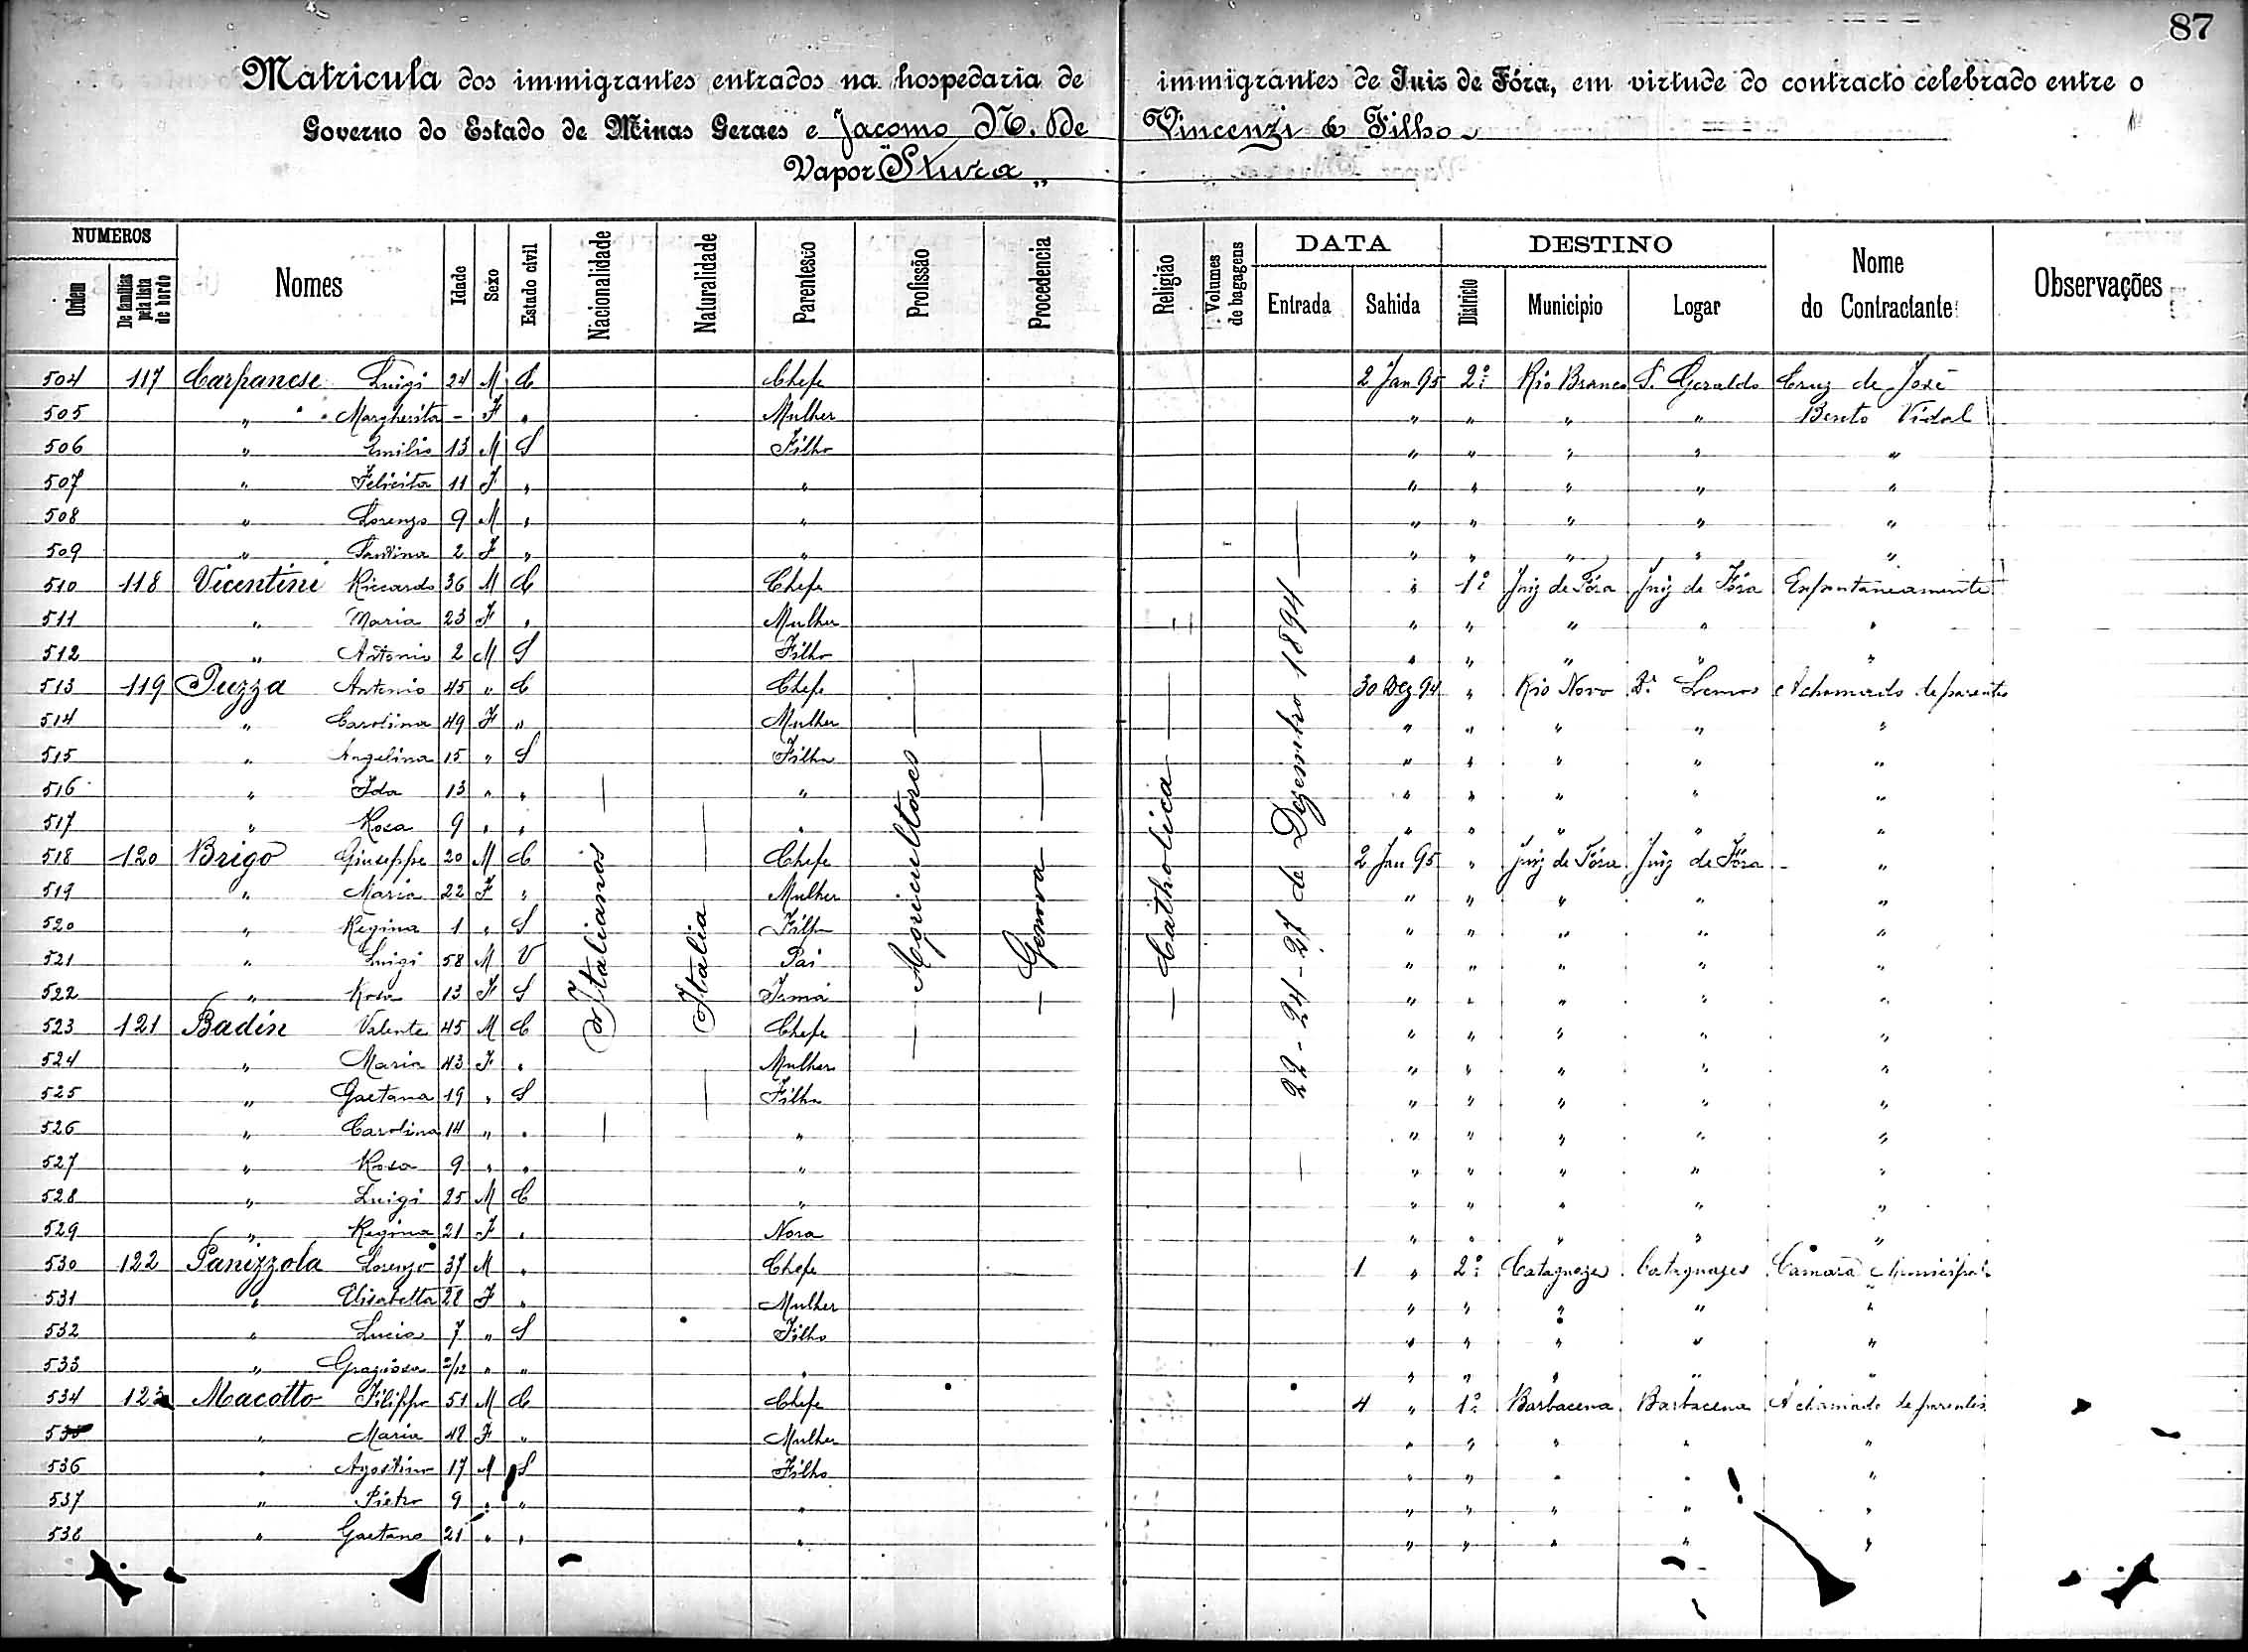 87
Matricula dos immigrantes entrados na hospedaria de immigrantes de Juiz de Fóra, em virtude do contracto celebrado entre o
Governo do Estado de Minas Geraes e Jacomo N. De Vincenzi & Filho
Vapor "Stura"
NUMEROS DATA DESTINO
Ordem De familias pela lista de bordo Nomes Idade Sexo Estado civil Nacionalidade Naturalidade Parentesco Profissão Procedencia Religião Volumes de bagagens Entrada Sahida Districto Municipio Logar Nome do Contractante Observações
Italianos Italia Agricultores Genova Catholica 22-24-27 de Dezembro 1894
504 117 Carpanese Luigi 24 M C Chefe 2 Jan 95 2º Rio Branco S. Geraldo Cruz de José
505 " Margherita - F " Mulher " " " " Bento Vidal
506 " Emilio 13 M S Filho " " " " "
507 " Felicita 11 F " " " " " " "
508 " Lorenzo 9 M " " " " " " "
509 " Santina 2 F " " " " " " "
510 118 Vicentini Riccardo 36 M C Chefe " 1º Juiz de Fóra Juiz de Fóra Espontaneamente
511 " Maria 23 F " Mulher " " " " "
512 " Antonio 2 M S Filho " " " " "
513 119 Puzza Antonio 45 " C Chefe 30 Dez 94 " Rio Novo Lemos A chamado de parentes
514 " Carolina 49 F " Mulher " " " " "
515 " Angelina 15 " S Filha " " " " "
516 " Ida 13 " " " " " " " "
517 " Rosa 9 " " " " " " " "
518 120 Brigo Giuseppe 20 M C Chefe 2 Jan 95 " Juiz de Fóra Juiz de Fóra "
519 " Maria 22 F " Mulher " " " " "
520 " Regina 1 " S Filha " " " " "
521 " Luigi 58 M V Pai " " " " "
522 " Rosa 13 F S Irmã " " " " "
523 121 Badin Valente 45 M C Chefe " " " " "
524 " Maria 43 F " Mulher " " " " "
525 " Gaetana 19 " S Filha " " " " "
526 " Carolina 14 " " " " " " " "
527 " Rosa 9 " " " " " " " "
528 " Luigi 25 M C " " " " " "
529 " Regina 21 F " Nora " " " " "
530 122 Panizzola Lorenzo 37 M " Chefe 1 " 2º Cataguazes Cataguazes Camara Municipal
531 " Elisabetta 28 F " Mulher " " " " "
532 " Lucia 7 " S Filho " " " " "
533 " Graziosa 2/12 " " " " " " " "
534 123 Macotto Filippo 51 M C Chefe 4 " 1º Barbacena Barbacena A chamado de parentes
535 " Maria 48 F " Mulher " " " " "
536 " Agostino 17 M S Filho " " " " "
537 " Pietro 9 " " " " " " " "
538 " Gaetano 21 " " " " " " " "